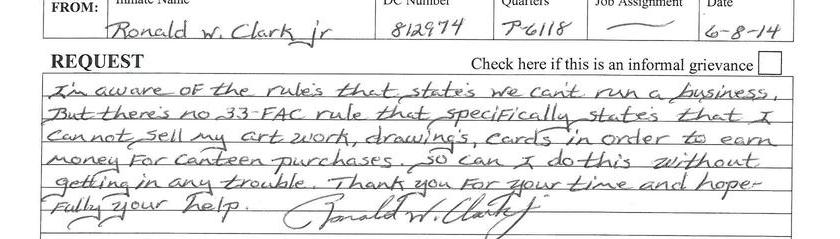 FROM: Inmate Name DC Number Quarters Job Assignment Date
Ronald W. Clark jr 812974 P-6118 6-8-14
REQUEST Check here if this is an informal grievance
I'm aware of the rule's that state's we can't run a business,
But there's no 33-FAC rule that specifically state's that I
cannot sell my art work, drawing's, cards in order to earn
money For canteen purchases. so can I do this without
getting in any trouble. Thank you For your time and hope-
Fully your help. Ronald W. Clark jr